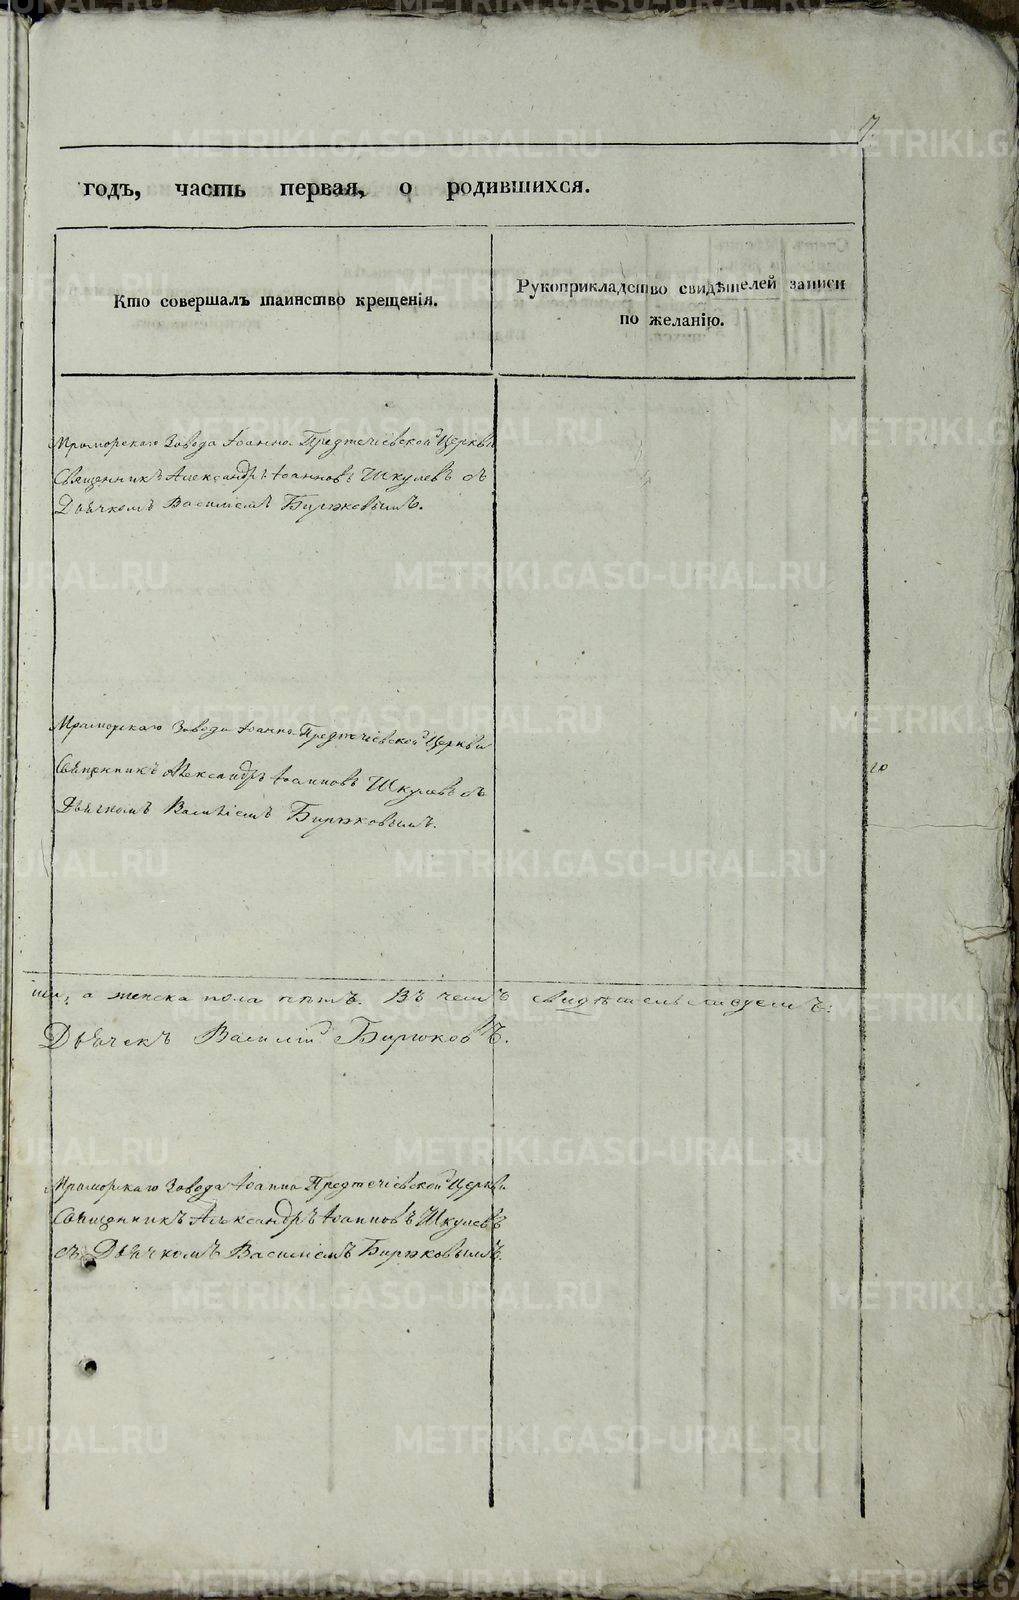 7.
годъ, часть первая, о родившихся.
Кто совершалъ таинство крещенія.
Рукоприкладство свидѣтелей записи
по желанію.
Мраморскаго Завода Іоанно Предтечіевской Церкви
Священникъ Александръ Іоанновъ Шкулевъ съ
Дьячкомъ Василіемъ Бирюковымъ.
Мраморскаго Завода Іоанно Предтечіевской Церкви
Священникъ Александръ Іоанновъ Шкулевъ съ
Дьячкомъ Василіемъ Бирюковымъ.
а женска пола пять. Въ чемъ свидѣтельствуемъ:
Дьячекъ Василій Бирюковъ.
Мраморскаго Завода Іоанно Предтечіевской Церкви
Священникъ Александръ Іоанновъ Шкулевъ
съ Дьячкомъ Василіемъ Бирюковымъ.
METRIKI.GASO-URAL.RU